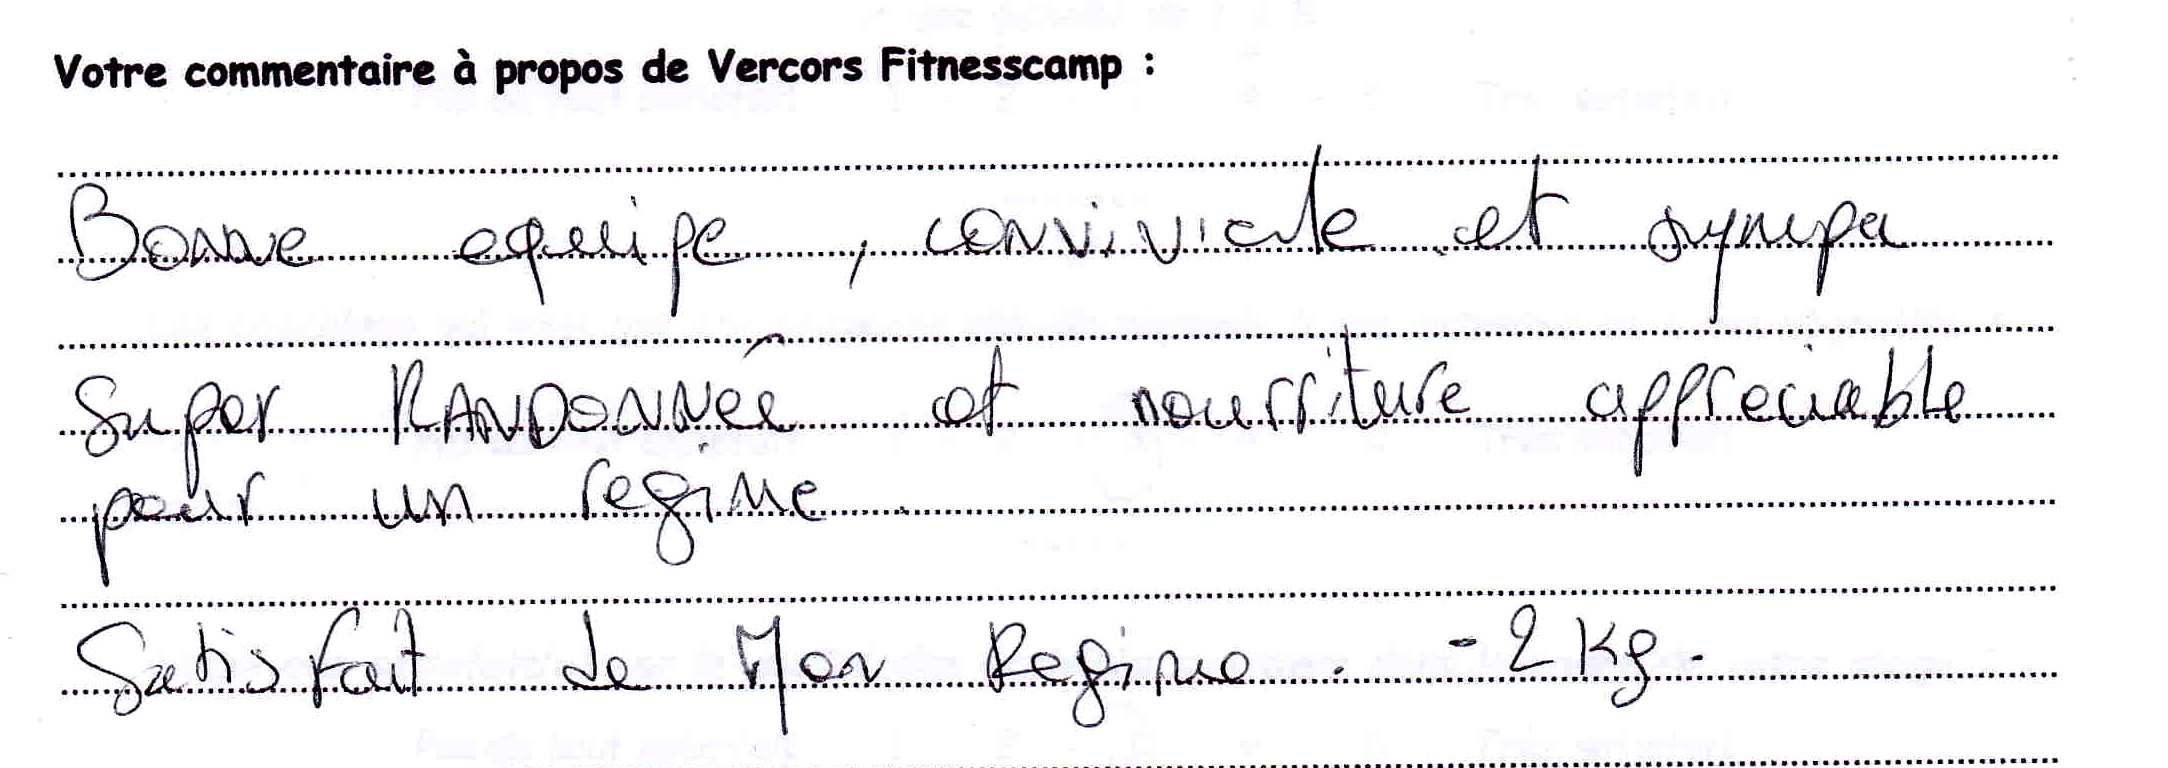 Votre commentaire à propos de Vercors Fitnesscamp :
Bonne equipe, conviviale et sympa
Super RANDONNÉE et nourriture appreciable
pour un regime.
Satisfait de Mon Regime. -2 Kg.